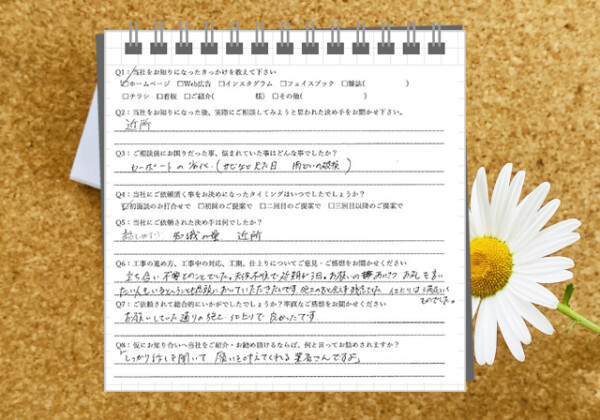 Q1：当社をお知りになったきっかけを教えて下さい
☑ホームページ □Web広告 □インスタグラム □フェイスブック □雑誌( )
□チラシ □看板 □ご紹介( 様) □その他( )
Q2：当社をお知りになった後、実際にご相談してみようと思われた決め手をお聞かせ下さい。
近所
Q3：ご相談後にお困りだった事、悩まれていた事はどんな事でしたか？
カーポートの劣化（サビなど見た目 雨といの破損）
Q4：当社にご依頼頂く事をお決めになったタイミングはいつでしたでしょうか？
☑初面談のお打合せで □初回のご提案で □二回目のご提案で □三回目以降のご提案で
Q5：当社にご依頼された決め手は何でしたか？
話しやすい 知識の量 近所
Q6：工事の進め方、工事中の対応、工期、仕上りについてご意見・ご感想をお聞かせください
立ち合い不要とのことでした。
仕上りは満足いく
ものでした。
Q7：ご依頼されて総合的にいかがでしたでしょうか？率直なご感想をお聞かせください
お願いしていた通りの施工、仕上りで良かったです
Q8：仮にお知り合いへ当社をご紹介・お勧め頂けるならば、何と言ってお勧めされますか？
「しっかり話しを聞いて 願いを叶えてくれる業者さんですよ」